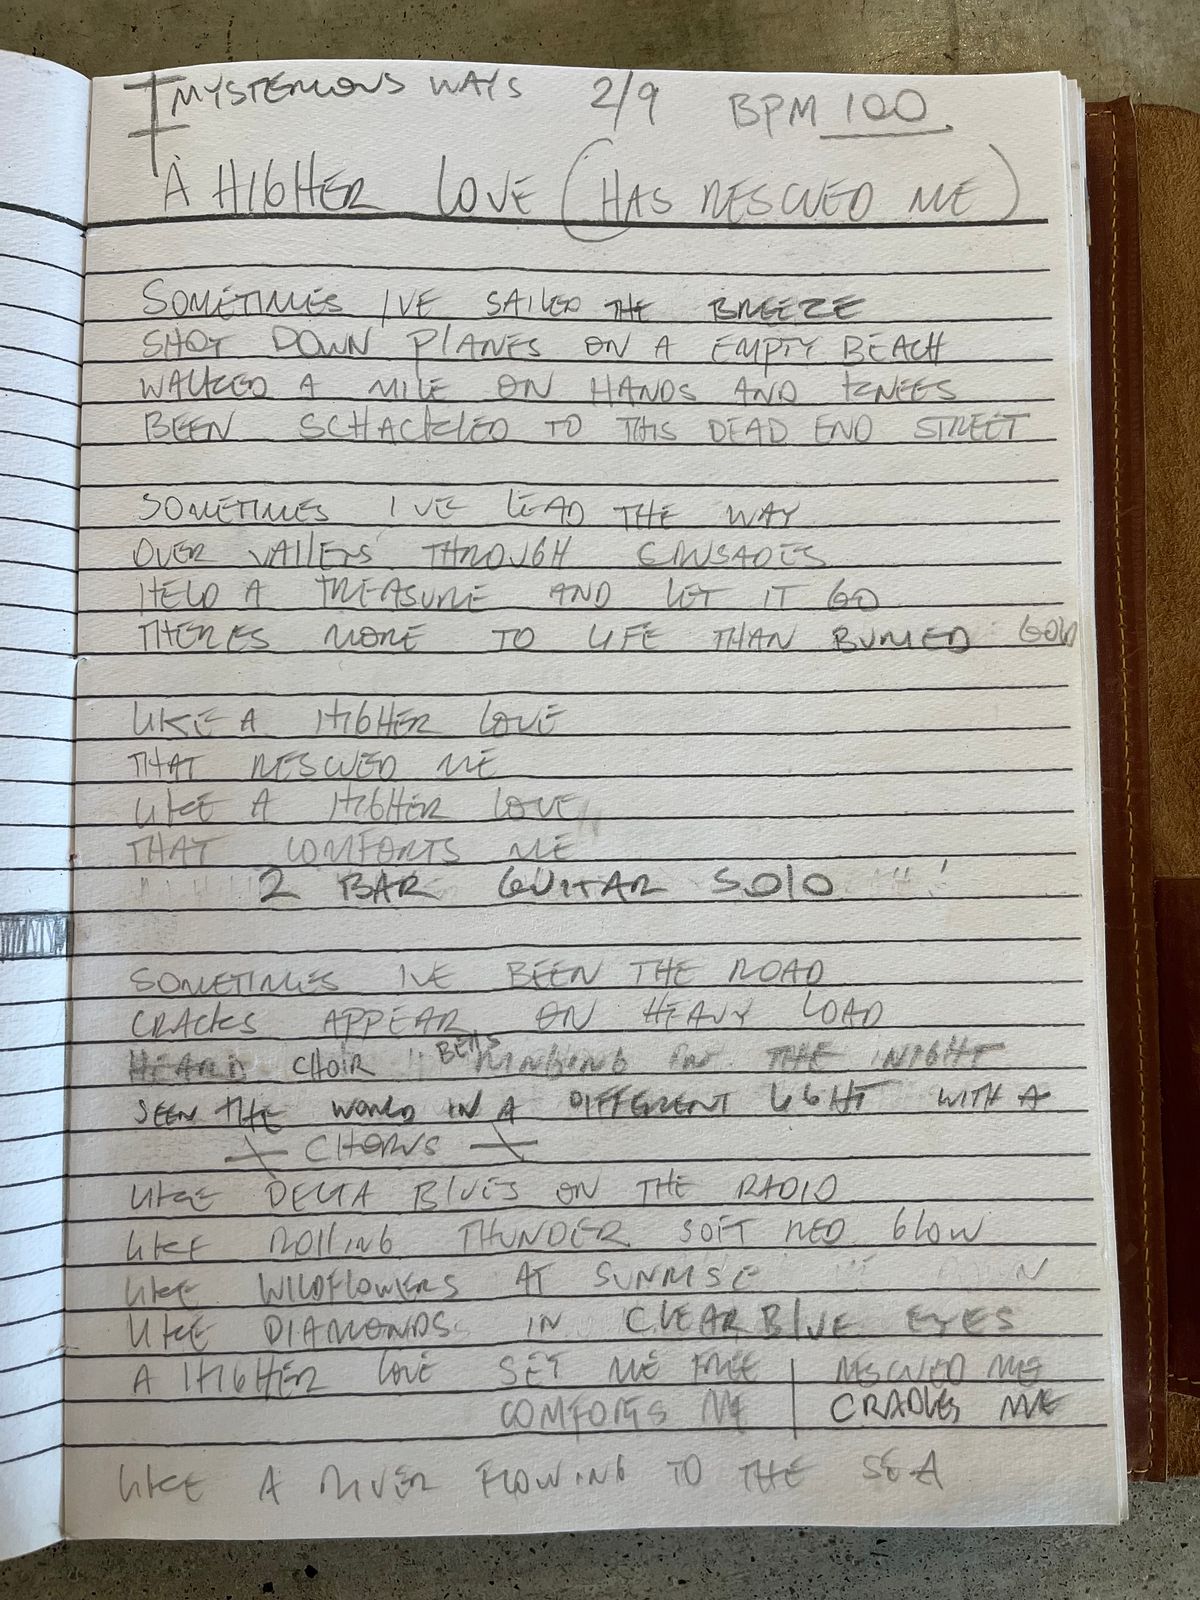 MYSTERIOUS WAYS 2/9 BPM 100
A HIGHER LOVE (HAS RESCUED ME)
SOMETIMES IVE SAILED THE BREEZE
SHOT DOWN PLANES ON A EMPTY BEACH
WALKED A MILE ON HANDS AND KNEES
BEEN SCHACKLED TO THIS DEAD END STREET
SOMETIMES I'VE LEAD THE WAY
OVER VALLEYS THROUGH CRUSADES
HELD A TREASURE AND LET IT GO
THERES MORE TO LIFE THAN BURIED GOLD
LIKE A HIGHER LOVE
THAT RESCUED ME
LIKE A HIGHER LOVE
THAT COMFORTS ME
2 BAR GUITAR SOLO
SOMETIMES IVE BEEN THE ROAD
CRACKS APPEAR ON HEAVY LOAD
HEARD CHOIR BELLS RINGING IN THE NIGHT
SEEN THE WORLD IN A DIFFERENT LIGHT WITH A
CHORUS
LIKE DELTA BLUES ON THE RADIO
LIKE ROLLING THUNDER SOFT RED GLOW
LIKE WILDFLOWERS AT SUNRISE
LIKE DIAMONDS IN CLEAR BLUE EYES
A HIGHER LOVE SET ME FREE | RESCUED ME
COMFORTS ME | CRADLES ME
LIKE A RIVER FLOWING TO THE SEA